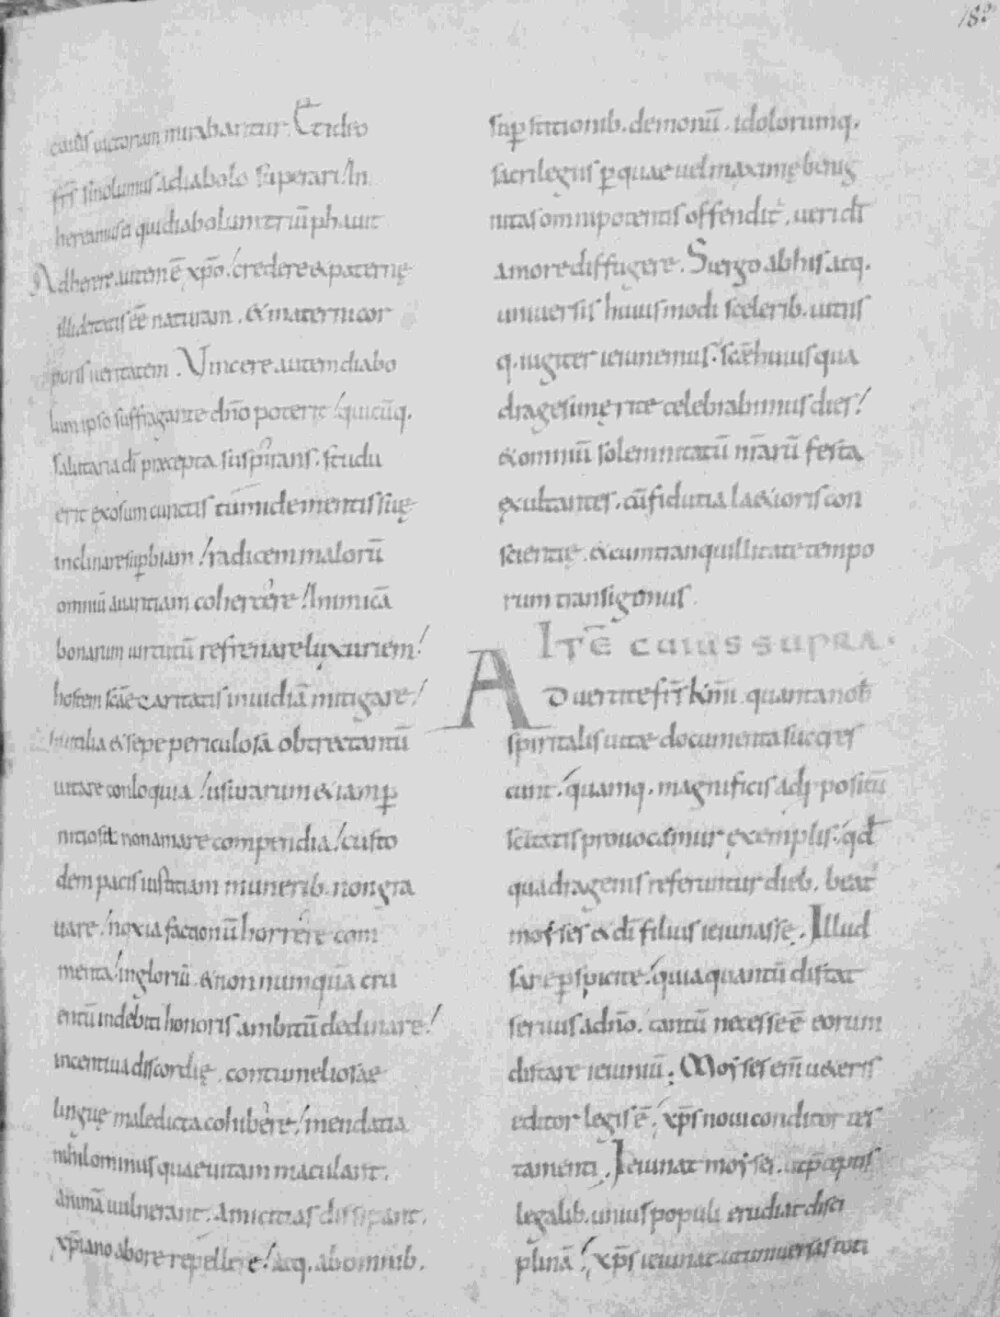 182
caelis uictoriam mirabantur. Et ideo
frs̄ si uolumus a diabolo superari. In
hereamus ei qui diabolum triūphauit
Adherere autem ē xp̄o. credere & paternę
illi deitatis eē naturam. & materni cor
poris ueritatem. Vincere autem diabo
lum ipso suffragante dn̄o poterit. quicūq.
salutaria dī praecepta suspirans. studu
erit exosum cunctis tumidementis suę
inclinare sup̱biam. radicem malorū
omniū auaritiam cohercere. Inimicā
bonarum uirtutū refrenare luxuriem.
hostem scāe caritatis inuidiā mitigare.
humilia & sepe periculosā obtrectantiū
uitare conloquia. usurarum & iamp̱
nitiosū non amare compendia. custo
dem pacis iustitiam munerib. non gra
uare. noxia factionū horrere com
menta. inglorīu. & non numquā cru
entū indebiti honoris ambitū declinare.
incentiua discordię. contumeliosae
linguę maledicta cohibere. mendatia
nihilominus quae uitam maculant.
animā uulnerant. amicitias dissipant.
xp̄iano ab ore repellere. atq. ab omnib.
sup̱stitionib. demonū. idolorumq.
sacrilegiis p̱ quae uel maximę benig
nitas omnipotentis offendit. ueri dī
amore diffugere. Si ergo ab his. atq.
uniuersis huiusmodi scelerib. uitiis
q. iugiter ieiunemus. scāe huius qua
dragesimę rite celebrabimus dies.
& omniū solemnitatū nr̄arū festa
exultantes. cū fidutia laetioris con
scientię. & cum tranquillitate tempo
rum transigimus.
ITĒ CUIUS SUPRA.
Aduertite frs̄ kmī. quanta nob̄
spiritalis uitae documenta succres
cunt. quamq. magnificis adp̱positū
scītatis prouocamur exemplis. qd̄
quadragenis referuntur dieb. beat
moyses & dī filius ieiunasse. Illud
sane p̱spicite. quia quantū distat
seruus a dn̄o. tantū necesse ē eorum
distare ieiuniū. Moyses enī ueteris
editor legis ē. xp̄s noui conditor tes
tamenti. Ieiunat moyses. ut p̄ceptis
legalib. unius populi erudiat disci
plinā. xp̄s ieiunat. ut uniuersas toti